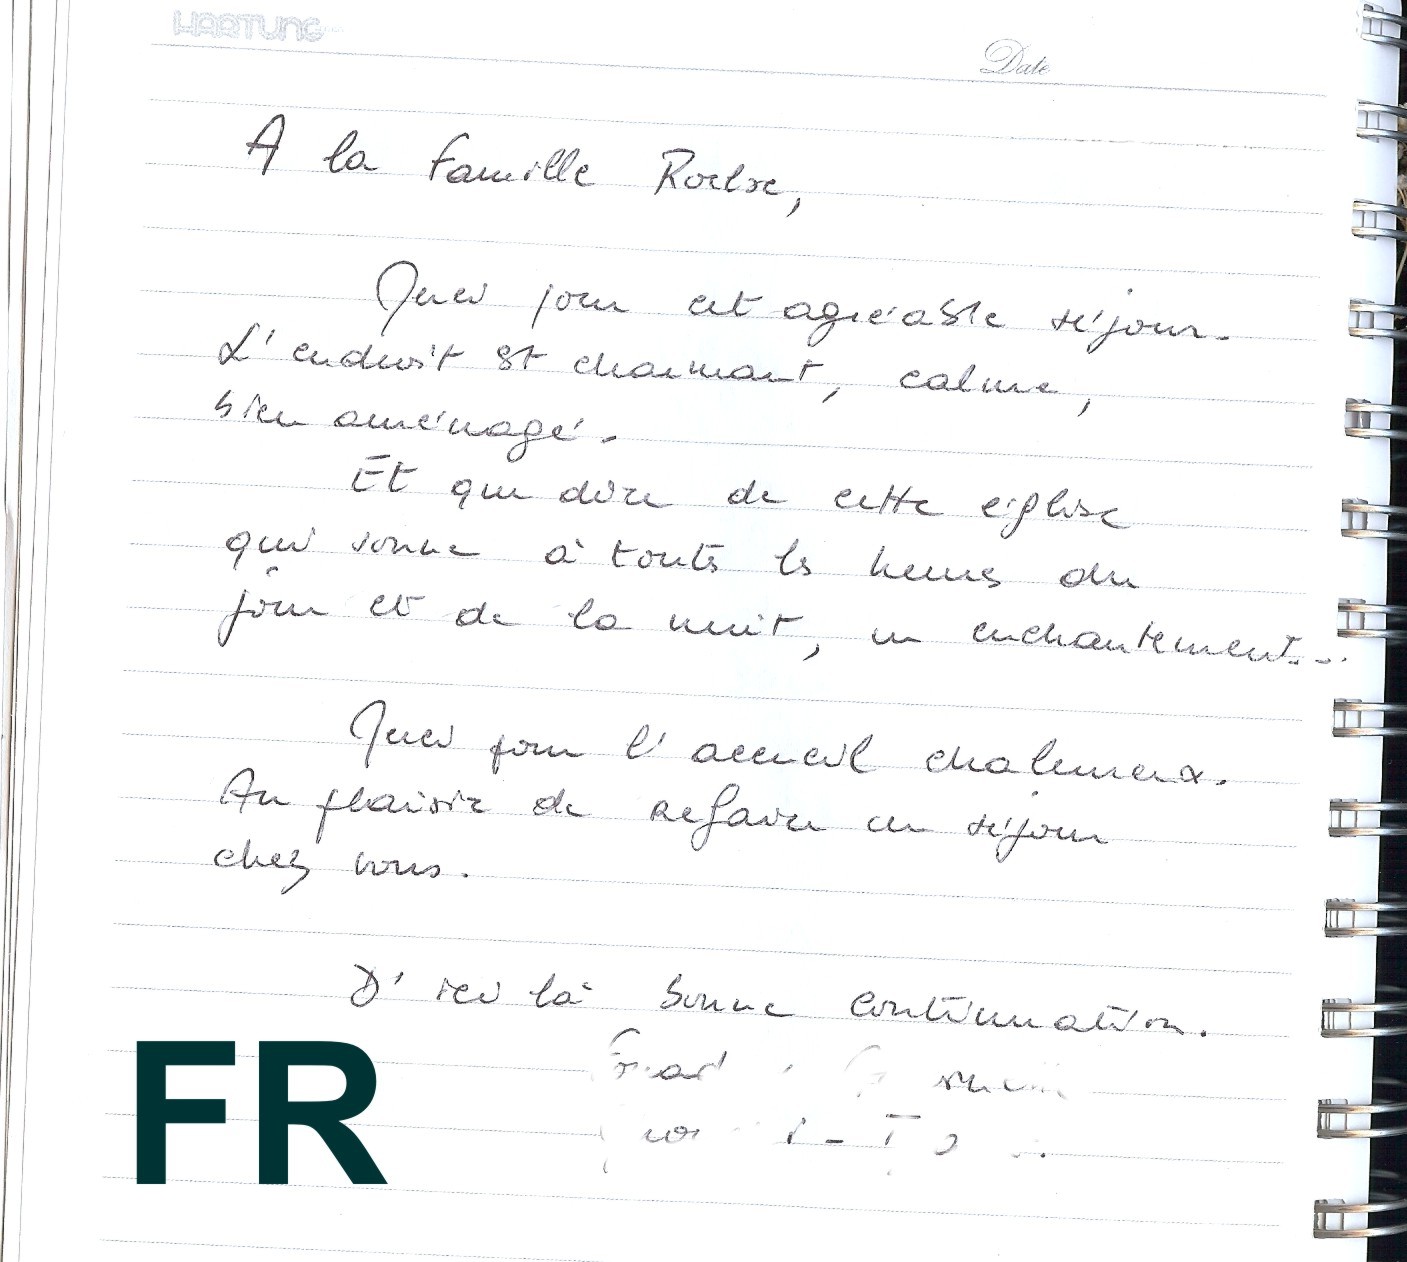 HARTUNG
Date
A la famille
Merci pour cet agréable séjour.
L'endroit est charmant, calme,
bien aménagé.
Et que dire de cette église
qui sonne à toutes les heures du
jour et de la nuit, un enchantement...
Merci pour l'accueil chaleureux.
Au plaisir de refaire un séjour
chez vous.
D'ici là bonne continuation.
FR